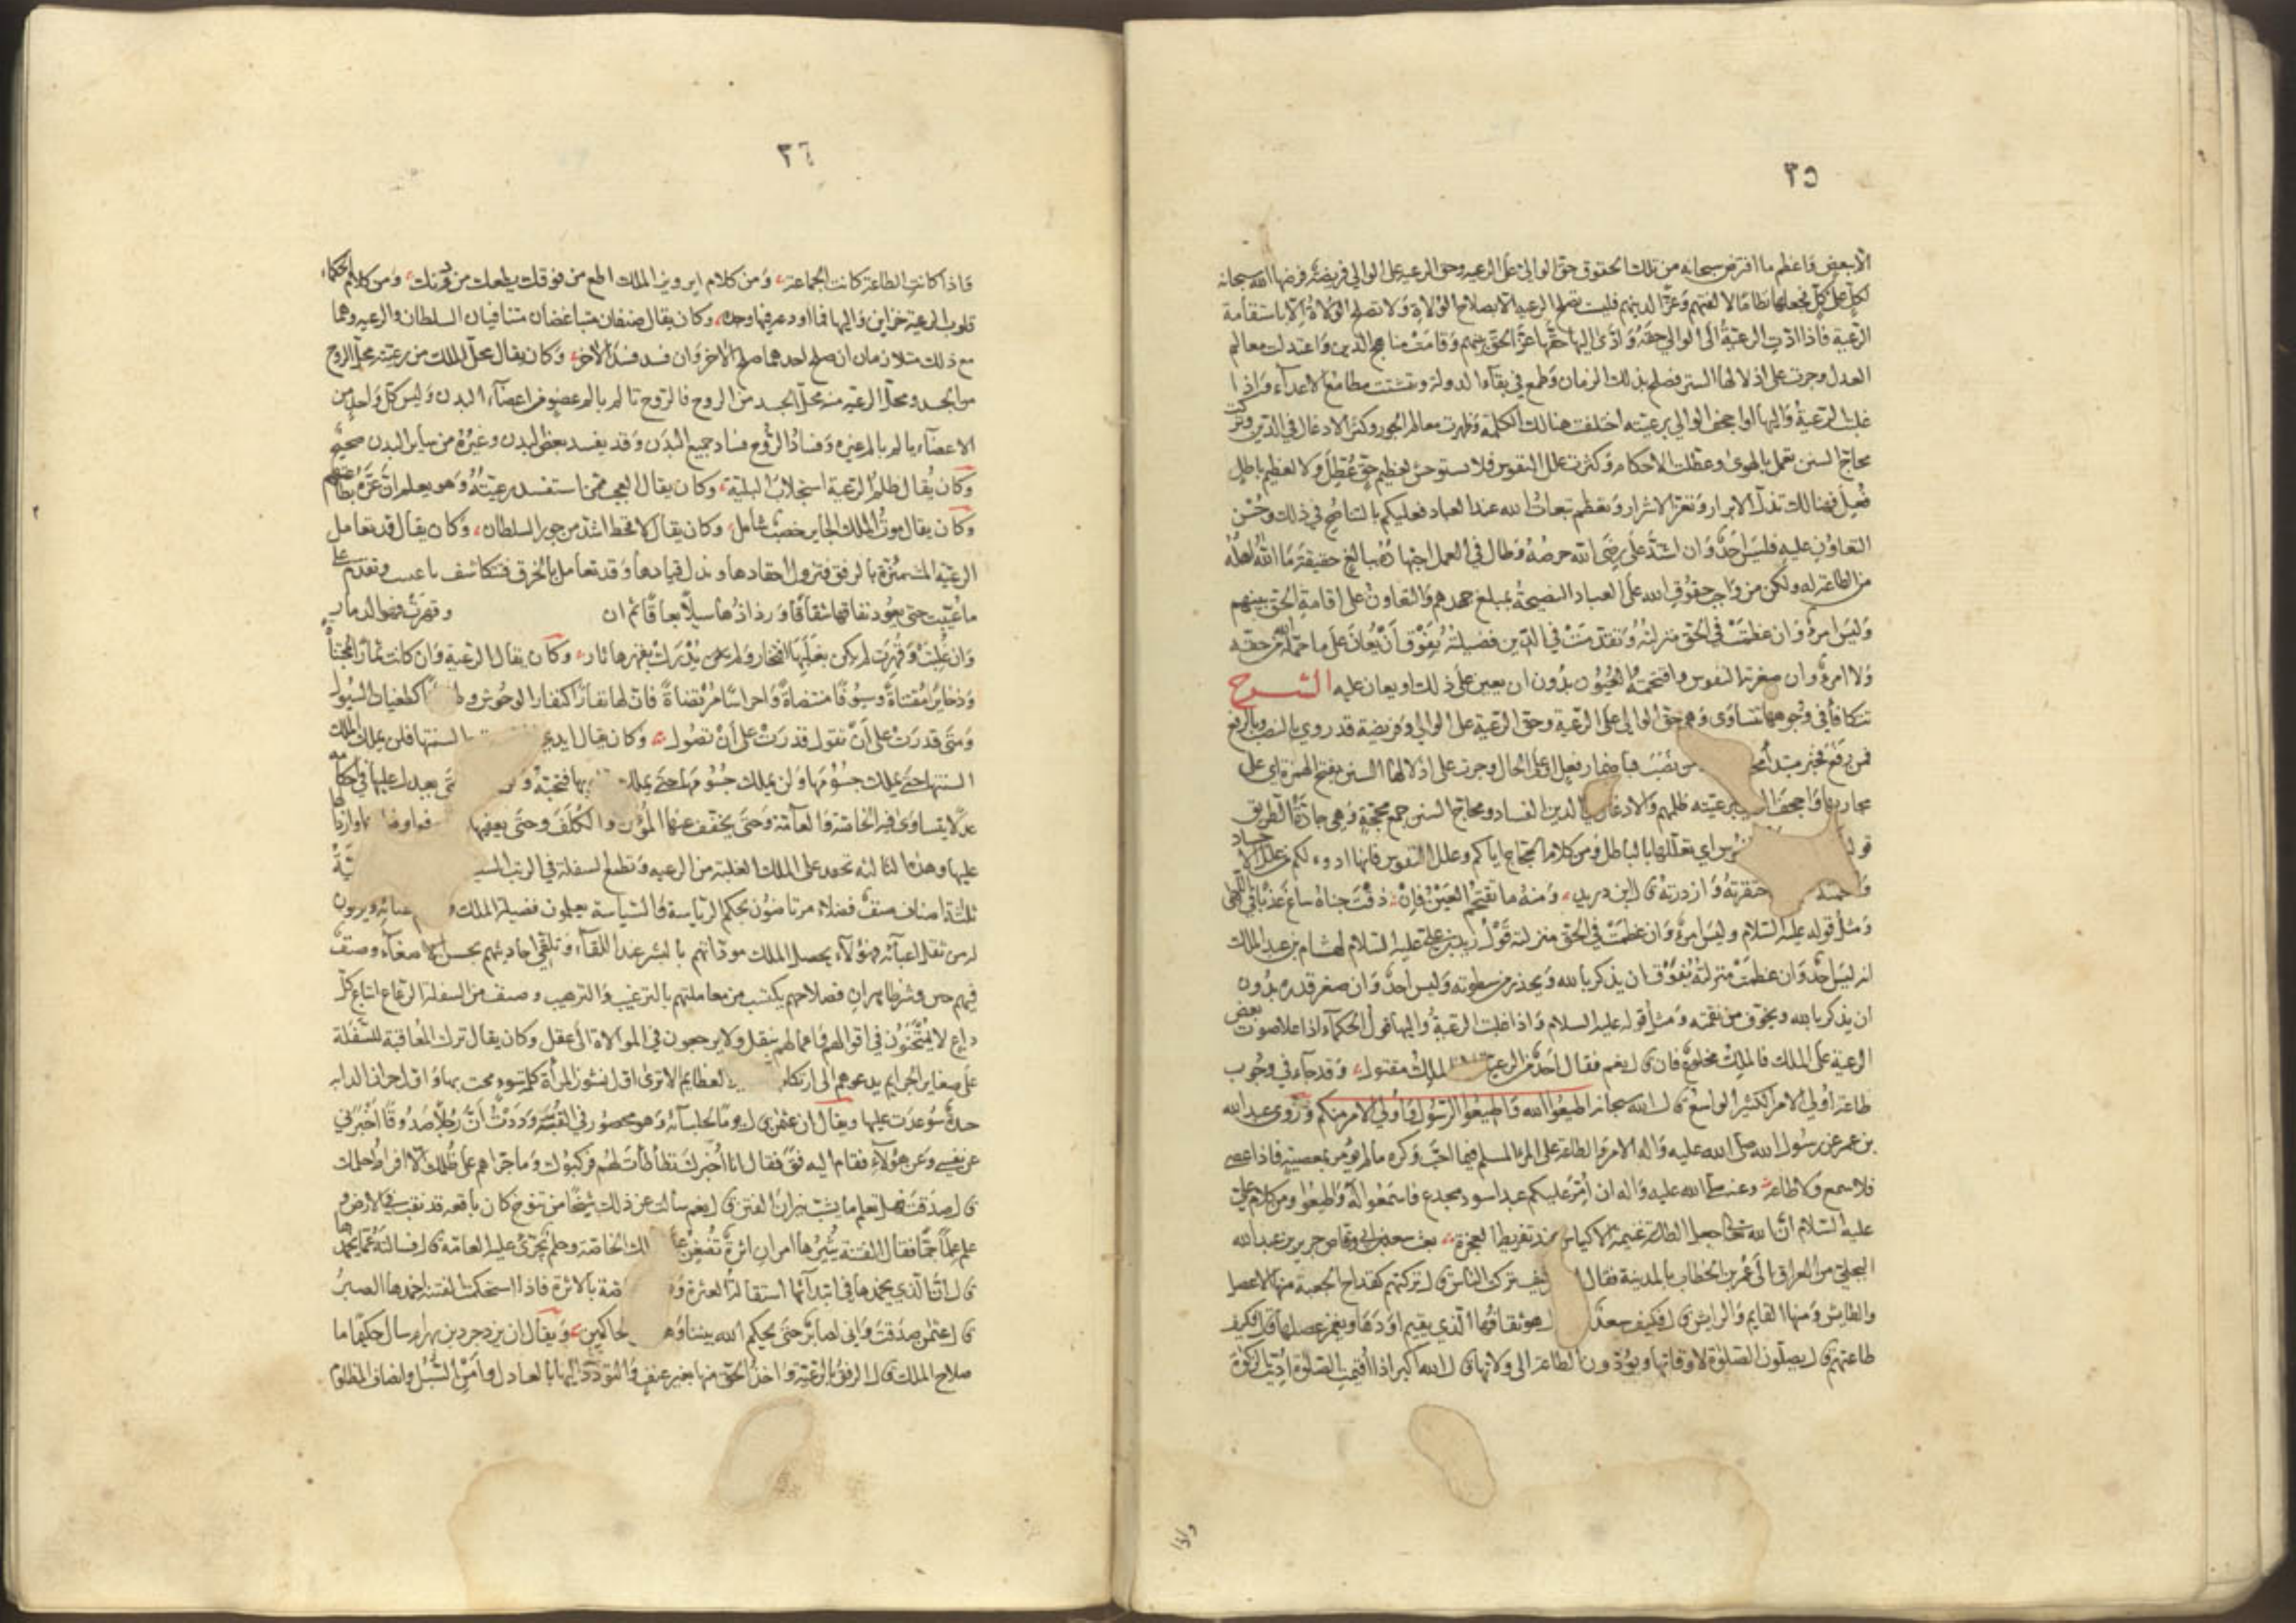 ٣٥
لبعض واعظم ما افترض سبحانه من تلك الحقوق حق الوالي على الرعيه وحق الرعيه على الوالي فريضة فرضها الله سبحانه
لكل على كل فجعلها نظاما لالفتهم وعزا لدينهم فليست تصلح الرعية الا بصلاح الولاة ولا تصلح الولاة الا باستقامة
الرعية فاذا ادت الرعية الى الوالي حقه وادى اليها حقها عز الحق بينهم وقامت مناهج الدين واعتدلت معالم
العدل وجرت على اذلالها السنن فصلح بذلك الزمان وطمع في بقاء الدولة ويئست مطامع الاعداء واذا
غلبت الرعية واليها او اجحف الوالي برعيته اختلفت هنالك الكلمة وظهرت معالم الجور وكثر الادغال في الدين وتركت
محاج السنن فعمل بالهوى وعطلت الاحكام وكثرت علل النفوس فلا يستوحش لعظيم حق عطل ولا لعظيم باطل
فعل فهنالك تذل الابرار وتعز الاشرار وتعظم تبعات الله عند العباد فعليكم بالتناصح في ذلك وحسن
التعاون عليه فليس احد وان اشتد على رضى الله حرصه وطال في العمل اجتهاده ببالغ حقيقة ما الله اهله
من الطاعة له ولكن من واجب حقوق الله على العباد النصيحة بمبلغ جهدهم والتعاون على اقامة الحق بينهم
وليس امرؤ وان عظمت في الحق منزلته وتقدمت في الدين فضيلته بفوق ان يعان على ما حمله الله من حقه
ولا امرؤ وان صغرته النفوس واقتحمته العيون بدون ان يعين على ذلك او يعان عليه الشرح
تتكافأ في وجوهها تتساوى وهي حق الوالي على الرعية وحق الرعية على الوالي وفريضة قد روي بالنصب وبالرفع
فمن رفع فخبر مبتدأ نصب فباضمار فعل او على الحال وجرت على اذلالها السنن بفتح الهمزة اي على
مجاريها واجحف برعيته ظلمهم والادغال الدين الفساد ومحاج السنن جمع محجة وهي جادة الطريق
اي تعللها بالباطل ومن كلام الحجاج اياكم وعلل النفوس فانها ادوء لكم من علل الاجساد
احتقرته وازدريته قال ابن دريد ومنه ما تقتحم العين فان ذقت جناه ساغ عذبا في اللهى
ومثل قوله عليه السلام وليس امرؤ وان عظمت في الحق منزلته قول زيد بن علي عليه السلام لهشام بن عبد الملك
انه ليس احد وان عظمت منزلته بفوق ان يذكر بالله ويحذر من سطوته وليس احد وان صغر قدره بدون
ان يذكر بالله ويخوف من نقمته ومثل قوله عليه السلام واذا غلبت الرعية واليها قول الحكماء اذا علا صوت بعض
الرعية على الملك فالملك مخلوع فان قال نعم فقال احد من الرعية الملك مقتول وقد جاء في وجوب
طاعة اولي الامر الكثير الواسع قال الله سبحانه اطيعوا الله واطيعوا الرسول واولي الامر منكم وروى عبد الله
بن عمر عن رسول الله صلى الله عليه واله الامر والطاعة على المرء المسلم فيما احب وكره ما لم يؤمر بمعصية فاذا عصى
فلا سمع ولا طاعة وعنه صلى الله عليه واله ان امر عليكم عبد اسود مجدع فاسمعوا له واطيعوا ومن كلام علي
عليه السلام ان الله جعل الطاعة غنيمة الاكياس عند تفريط العجزة بعث سعد بن ابي وقاص جرير بن عبد الله
البجلي من العراق الى عمر بن الخطاب بالمدينة فقال كيف تركت الناس قال تركتهم كقداح الجعبة منها الاعصل
والطايش ومنها القايم والرايش قال فكيف سعد قال هو ثقافها الذي يقيم اودها ويغمز عصلها قال فكيف
طاعتهم قال يصلون الصلوة لاوقاتها ويؤدون الطاعة الى ولاتها قال الله اكبر اذا اقيمت الصلوة اديت الزكوة
٣٦
واذا كانت الطاعة كانت الجماعة ومن كلام ابرويز الملك اطع من فوقك يطعك من دونك ومن كلام الحكماء
قلوب الرعية خزاين واليها فما اودعه فيها وجده وكان يقال صنفان متباغضان متنافيان السلطان والرعيه وهما
مع ذلك متلازمان ان صلح احدهما صلح الاخر وان فسد فسد الاخر وكان يقال محل الملك من رعيته محل الروح
من الجسد ومحل الرعيه منه محل الجسد من الروح فالروح تالم بالم عضو من اعضاء البدن وليس كل واحد من
الاعضاء يالم بالم غيره وفساد الروح فساد جميع البدن وقد يفسد بعض البدن وغيره من ساير البدن صحيح
وكان يقال ظلم الرعية استجلاب البلية وكان يقال العجب ممن استفسد رعيته وهو يعلم ان عزه بطاعتهم
وكان يقال موت الملك الجاير خصب شامل وكان يقال لا قحط اشد من جور السلطان وكان يقال قد تعامل
الرعية المشمئزة بالرفق فتزول احقادها ويذل قيادها وقد تعامل بالخرق فتكاشف بما غيبت وتقدم على
ما عيبت حتى يعود نفاقها شقاقا ورذاذها سيلا بعاقا ثم ان وقهرت فهو الدمار
وان غلبت وقهرت لم يكن بغلبها افتخار ولم يدرك بقهرها ثار وكان يقال الرعية وان كانت ثمارا مجتناة
وذخاير مقتناة وسيوفا منتضاة واحراسا مرتضاة فان لها نفارا كنفار الوحوش كطغيان السيول
ومتى قدرت على ان تقول قدرت على ان تصول وكان يقال السنتها فلن يملك الملك
السنتها حتى يملك جسومها ولن يملك جسومها حتى يملك فتحبه يعدل عليها في احكامه
عدلا يتساوى فيه الخاصة والعامة وحتى يخفف عنها المؤن والكلف وحتى يعفيها
عليها وهذه الثالثة تحقد على الملك العلية من الرعيه وتطمع السفلة في الرتب
ثلثة اصناف صنف فضلاء مرتاضون بحكم الرياسة والسياسة يعلمون فضيلة الملك ويرثون
له من ثقل اعبائه فهؤلاء يحصل الملك موداتهم بالبشر عند اللقاء وتلقي احاديثهم بحسن الاصغاء وصنف
فيهم خير وشر ظاهران فصلاحهم يكتسب من معاملتهم بالترغيب والترهيب وصنف من السفلة الرعاع اتباع كل
داع لا يمتحنون في اقوالهم واعمالهم بنقل ولا يرجعون في الموالاة الى عقل وكان يقال ترك المعاقبة للسفلة
على صغاير الجرايم يدعوهم الى ارتكاب العظايم الا ترى اول نشوز المراة كلمة سومحت بها واول حران الدابه
حيدة سوعدت عليها ويقال ان عثمان قال يوما لجلسائه وهو محصور في الفتنة وددت ان رجلا صدوقا اخبرني
عن نفسي وعن هؤلاء فقام اليه فتى فقال انا اخبرك تطأطأت لهم فركبوك وما جراهم على ظلمك الا افراط حلمك
قال صدقت فهل تعلم ما يشب نيران الفتن قال نعم سالت عن ذلك شيخا من تنوخ كان باقعة قد نقب في الارض
علم علما جما فقال الفتنة يثيرها امران اثرة تضغن على الملك الخاصة وحلم يجزئ عليه العامة قال فسالته عما يخمدها
قال ان الذي يخمدها في ابتدائها استقالة العثرة الخاصة بالاثرة فاذا استحكمت الفتنة اخمدها الصبر
قال عثمان صدقت واني لصابر حتى يحكم الله بيننا وهو خير الحاكمين ويقال ان يزدجرد بن بهرام سال حكيما ما
صلاح الملك قال الرفق بالرعية واخذ الحق منها بغير عنف والتودد اليها بالعدل وامن السبل وانصاف المظلوم